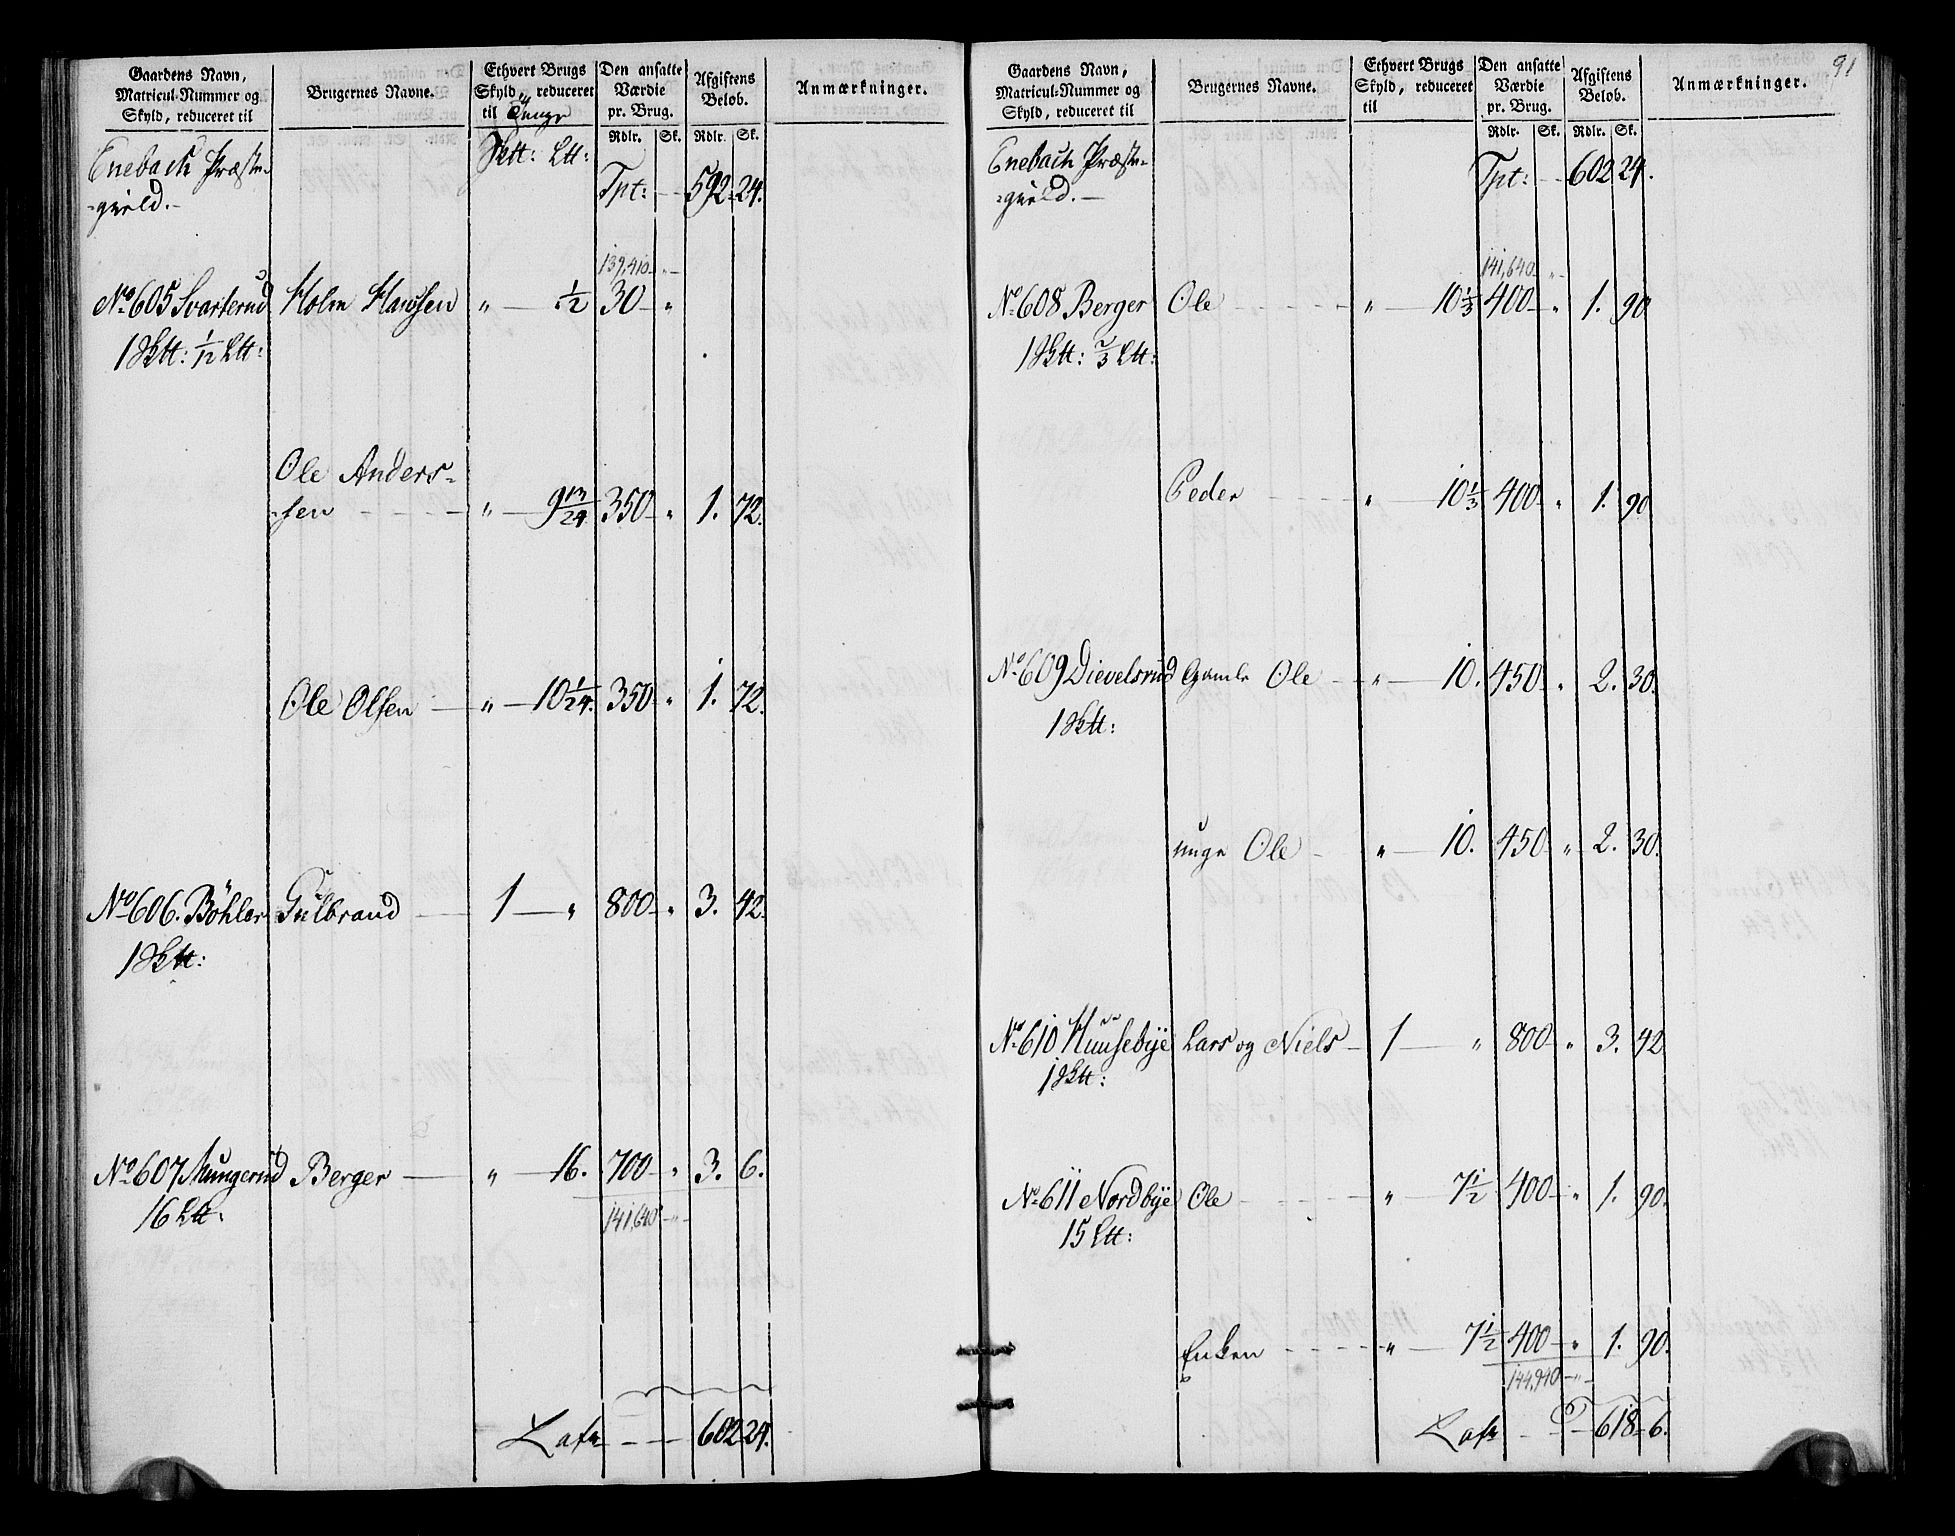 Gaardens Navn,
Matricul-Nummer og
Skyld, reduceret til
Brugernes Navne.
Ethvert Brugs
Skyld, reduceret
til Tunge
Den ansatte
Værdie
pr. Brug.
Afgiftens
Beløb.
Anmærkninger.
Rdlr. Sk. Rdlr. Sk.
Enebach Præste-
-gield.-
Sktt: Ltt:
Tpt: - - 592 - 24.
139,410 - " -
No 605 Svarterud Holm Hanssen " - 1/2 30 - "
1 Sktt: 1/12 Ltt:
Ole Anders-
-sen - - - - " - 9 13/24 350 - " 1. 72.
Ole Olsen - " - 10 1/24. 350 - " 1. 72.
No 606. Böhler Gulbrand - 1 - " 800 - " 3. 42.
1 Sktt:
No 607 Mungerud Berger - " - 16. 700 - " 3. 6.
16 Ltt:
141,640 - " -
Lats - - - 602 24.
91
Gaardens Navn,
Matricul-Nummer og
Skyld, reduceret til
Brugernes Navne.
Ethvert Brugs
Skyld, reduceret
til
Den ansatte
Værdie
pr. Brug.
Afgiftens
Beløb.
Anmærkninger.
Rdlr. Sk. Rdlr. Sk.
Enebach Præste-
-gield. -
Tpt: - - 602 24.
141,640 - " -
No 608 Berger Ole - - - - " - 10 1/3 400 - " 1. 90
1 Sktt: 2/3 Ltt:
Peder - - - - " - 10 1/3 400 - " 1. 90
No 609 Dievelsrud Gamle Ole - " - 10. 450 - " 2. 30.
1 Sktt:
unge Ole - " - 10. 450 " 2. 30.
No 610 Huusebye Lars og Niels - 1 - " 800 - " 3. 42
1 Sktt:
No 611 Nordbye Ole - - - - " - 7 1/2 400 - " 1. 90.
15 Ltt:
Enken - - - - " - 7 1/2 400 - " 1. 90.
144,940 - " -
Lats - - - 618 - 6.